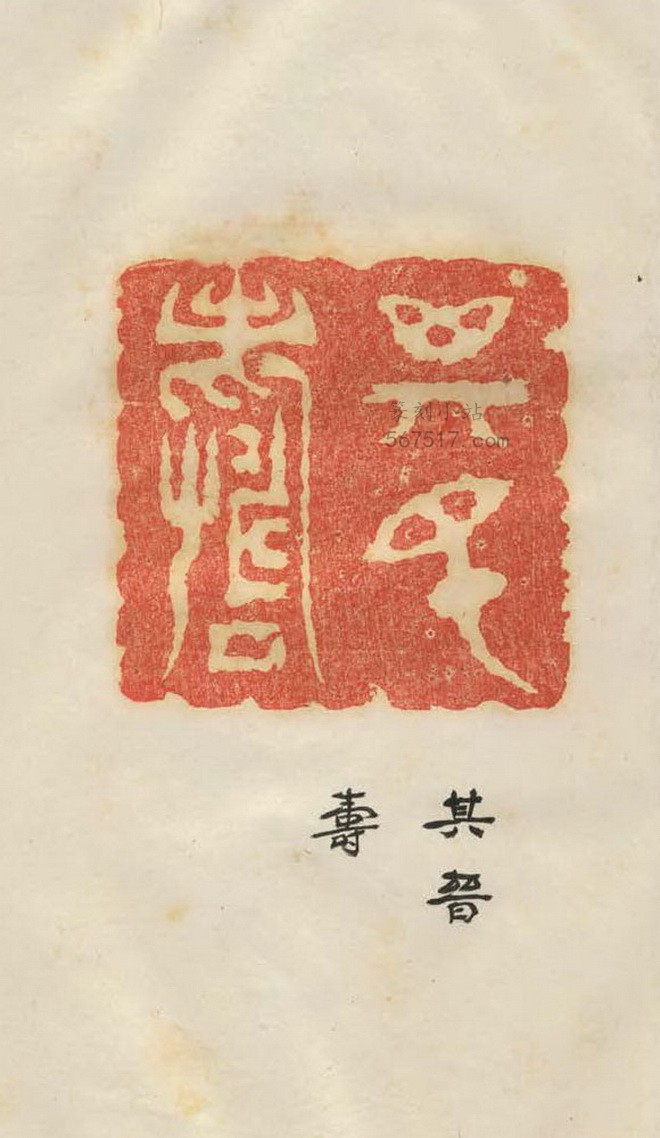 其
壽
篆刻小站
567517.com